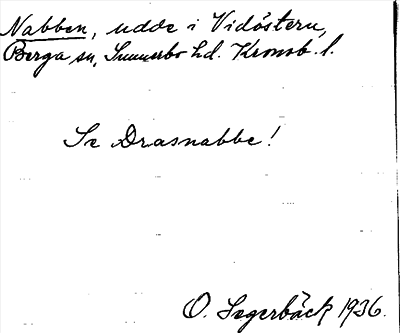 Nabben, udde i Vidöstern,
Berga sn, Sunnerbo hd. Kronob. l.
Se Drasnabbe!
O. Segerbäck 1936.